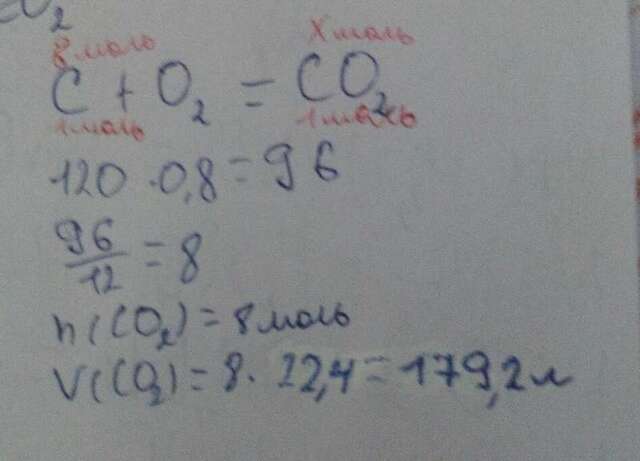 O₂
8 моль X моль
C + O₂ = CO₂
1 моль 1 моль
120 · 0,8 = 96
96/12 = 8
n(CO₂) = 8 моль
V(CO₂) = 8 · 22,4 = 179,2 л